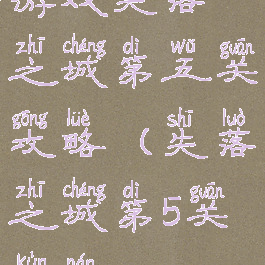 游戏失落
zhī chéng dì wǔ guān
之城第五关
gōng lüè shī luò
攻略（失落
zhī chéng dì guān
之城第5关
kùn nán